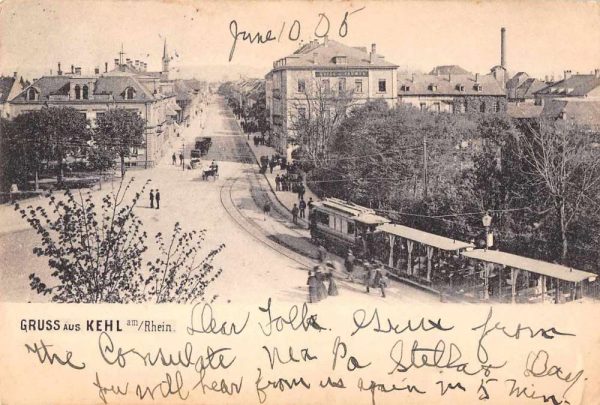 June 10. 05
GRUSS AUS KEHL am/Rhein.
Dear Folk. from
the Consulate, Ma Pa Stella Day.
You will hear from us again in 5 min.